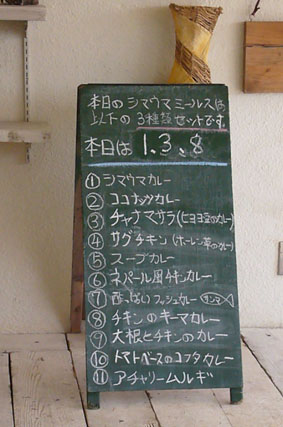 本日のシマウマミールスは
以下の3種類セットです。
本日は 1.3、8
① シマウマカレー
② ココナッツカレー
③ チャナマサラ(ヒヨコ豆のカレー)
④ サグチキン(ホーレン草のカレー)
⑤ スープカレー
⑥ ネパール風チキンカレー
⑦ 酸っぱいフィッシュカレー サンマ
⑧ チキンのキーマカレー
⑨ 大根とチキンのカレー
⑩ トマトベースのコフタカレー
⑪ アチャリームルギ